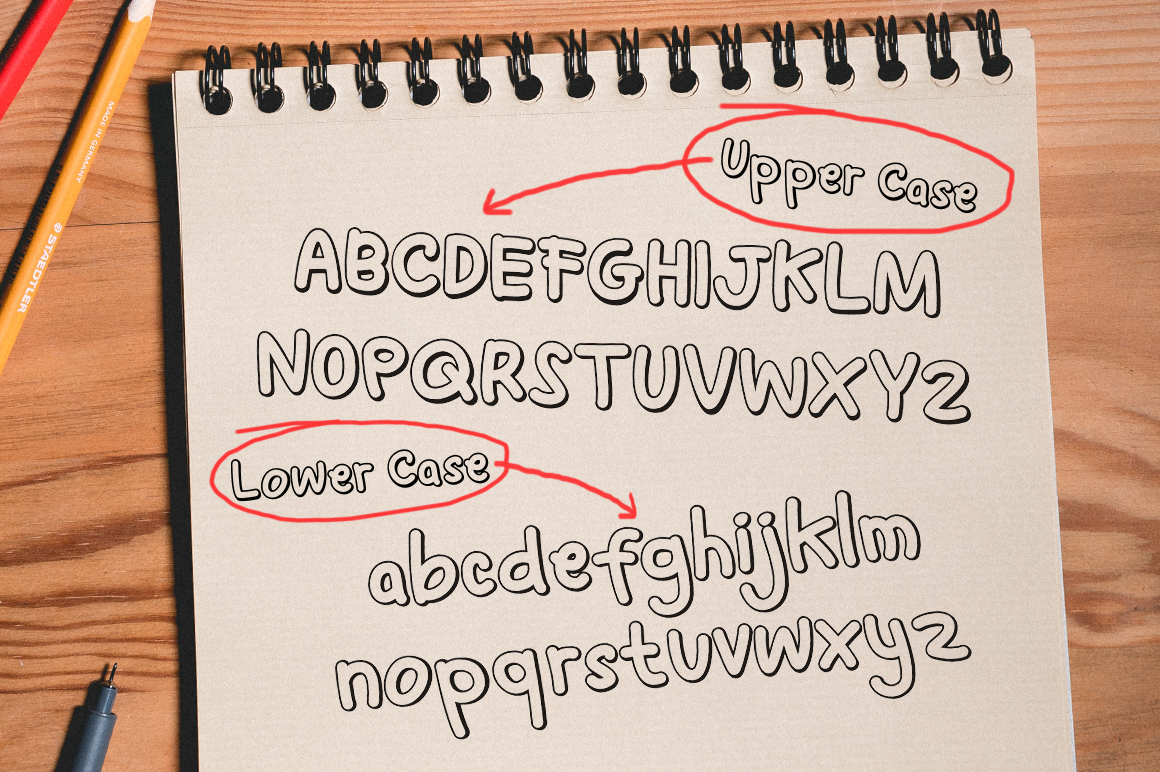 Upper Case
ABCDEFGHIJKLM
NOPQRSTUVWXYZ
Lower Case
abcdefghijklm
nopqrstuvwxyz
MADE IN GERMANY
STAEDTLER